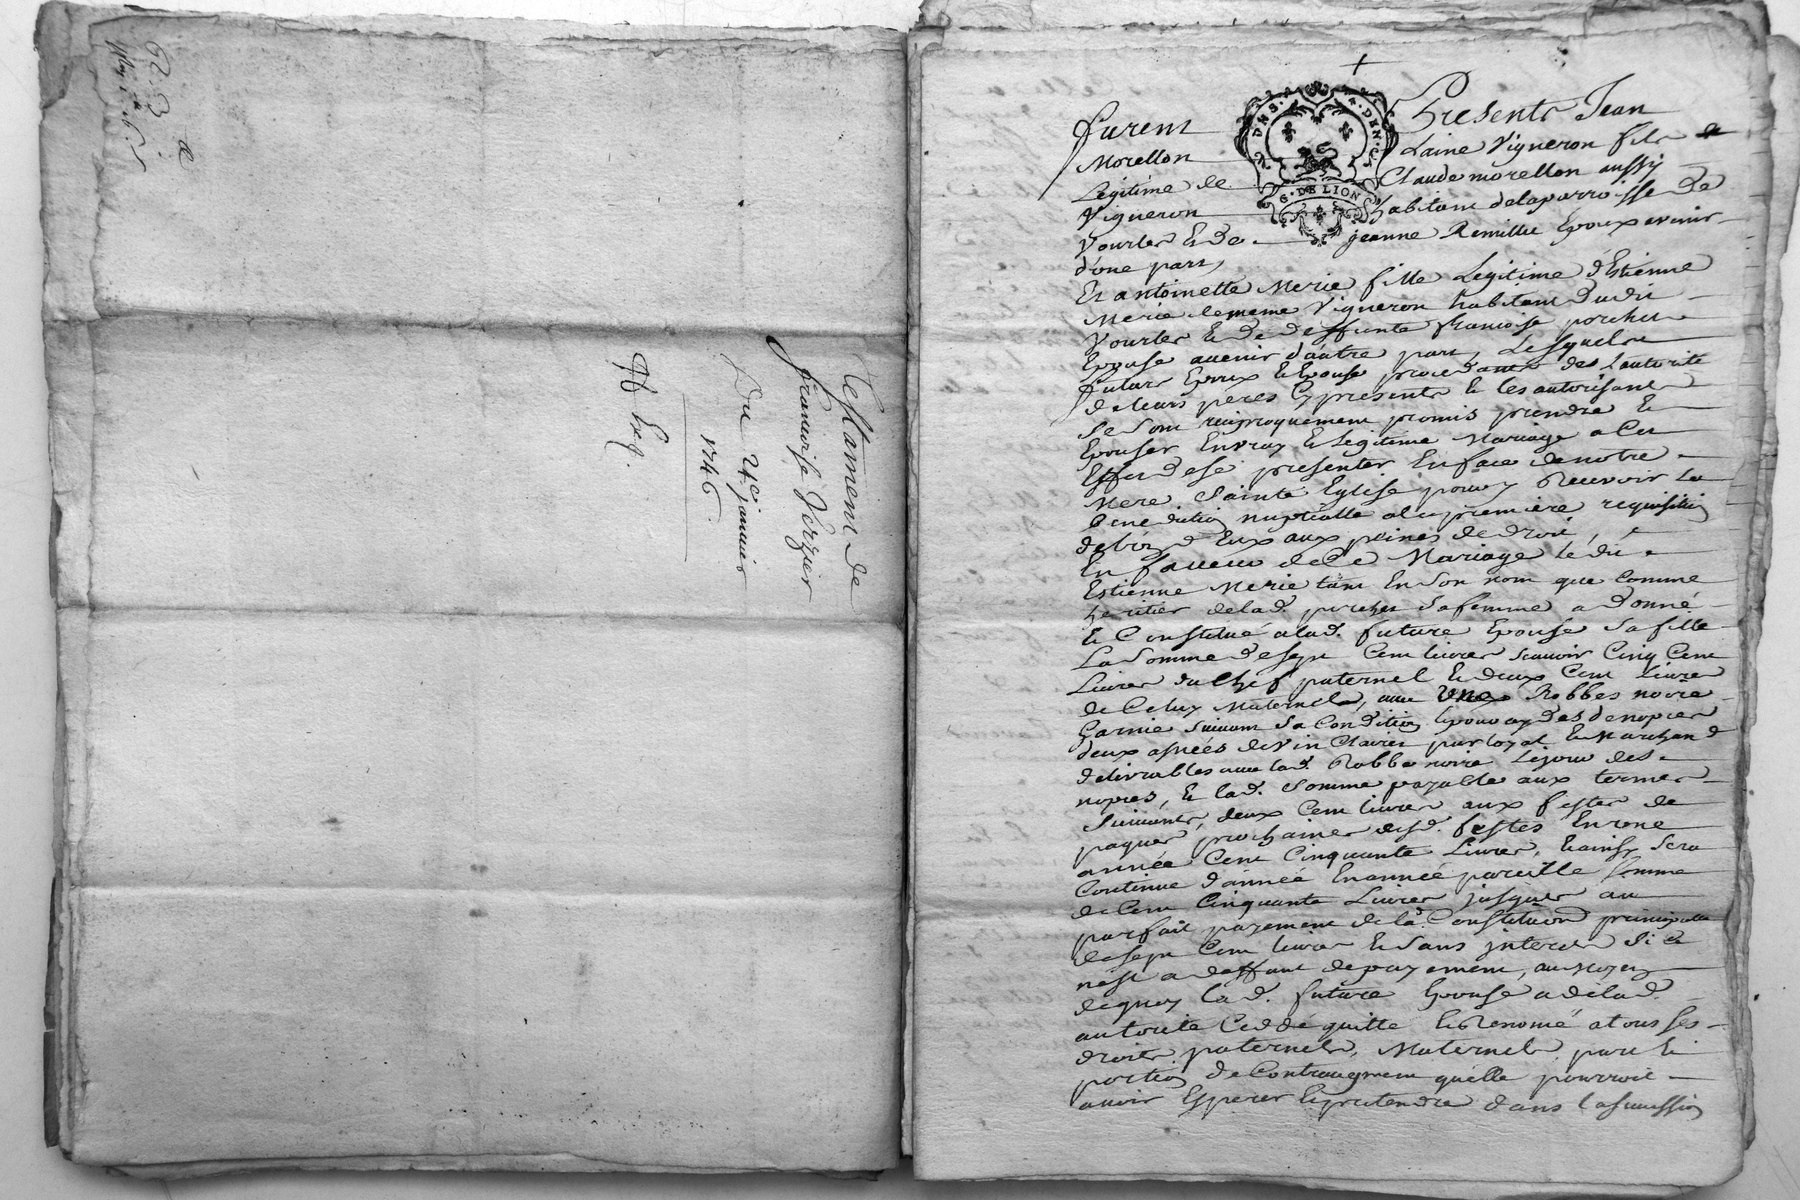 Testament de
francoise Verzier
Du 24e janvier
1746
furent Presents Jean
Morellon Laine Vigneron fils
Legitime de Claude morellon aussy
Vigneron habitant delaparroisse de
Vourles Et de jeanne Remillie Epoux avenir
d'une part,
Et antoinette Merie fille Legitime d'Estienne
Merie lememe Vigneron habitant dudit
Vourles Et de deffunte francoise porcher
Epouse avenir d'autre part, Lesquels
futurs Epoux Et Epouse procedants des Lautorité
de leurs peres Cy presents Et les autorisants
se sont reciproquement promis prendre Et
Epouser En vray Et Legitime Mariage a Cet
Effet de se presenter En face de notre
Mere Sainte Eglise pour y Recevoir La
benediction nuptialle alapremiere requisition
de l'un d'Eux aux peines de droit,
En faveur de Ce Mariage le dit
Estienne Merie tant En son nom que Comme
heritier delad. porcher sa femme a donné
Et Constitué alad. future Epouse sa fille
La somme de sept Cent livres scavoir Cinq Cent
Livres du Chef paternel Et deux Cent Livres
de Celuy Maternel, avec Une Robbes noire
Garnie suivant sa Condition
deux asnées de vin Clairet pur loyal Et Marchand
delivrables avec lad. Robbe noire Lejour des
nopces, Et lad. somme payable aux termes
suivants, deux Cent livres aux festes de
paques prochaines desd. festes En une
année Cent Cinquante Livres, Et ainsy sera
Continué d'année En année pareille somme
de Cent Cinquante Livres jusques au
parfait payement de lad. Constitution principale
de sept Cent livres Et sans interets si Ce
nest a deffaut depayement, au Moyen
dequoy lad. future Epouse a delad.
autorité Cedde quitté Et Renoncé a tous ses
droits paternels, Maternels, part Et
portion de Contraugment quelle pourroit
avoir Esperer Et pretendre dans lasuccession
G. DE LION